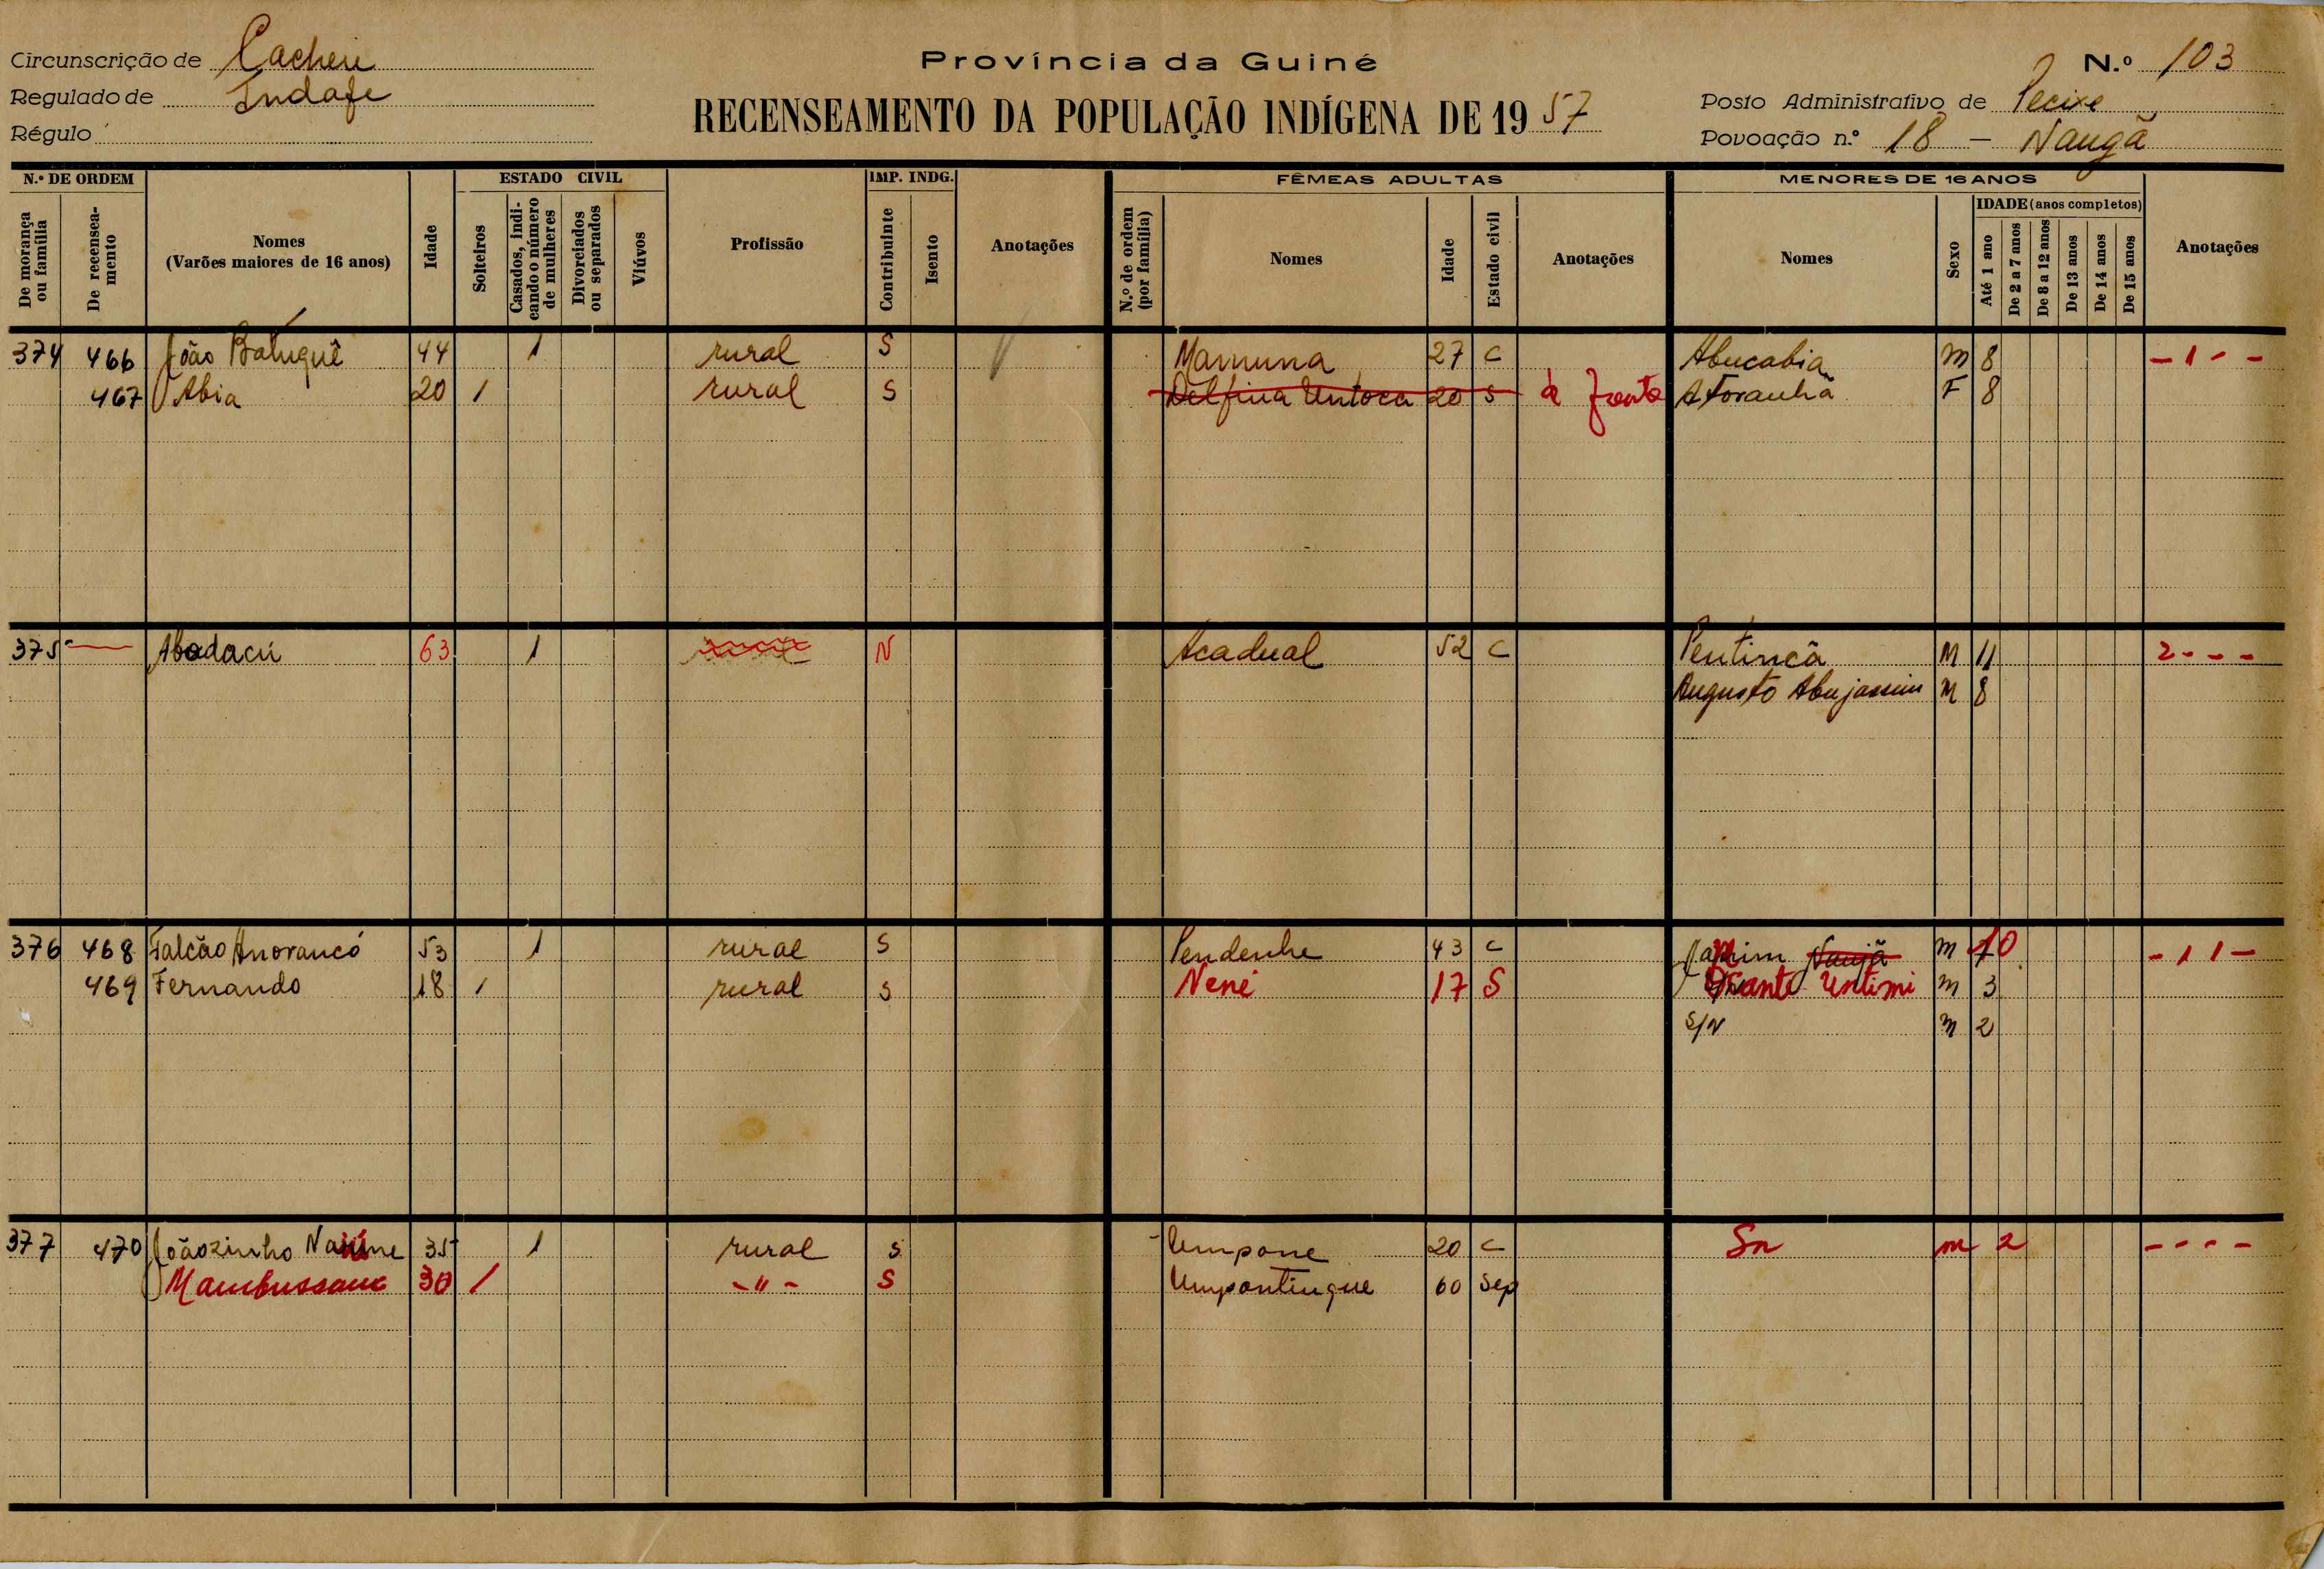 Província da Guiné
N.º 103
Circunscrição de Cacheu
Regulado de Indafe
Régulo
RECENSEAMENTO DA POPULAÇÃO INDÍGENA DE 1957
Posto Administrativo de Pecixe
Povoação n.º 18 - Naugã
N.º DE ORDEM
De morança ou família
De recenseamento
Nomes
(Varões maiores de 16 anos)
Idade
ESTADO CIVIL
Solteiros
Casados, indicando o número de mulheres
Divorciados ou separados
Viúvos
Profissão
IMP. INDG.
Contribuinte
Isento
Anotações
FÊMEAS ADULTAS
N.º de ordem (por família)
Nomes
Idade
Estado civil
Anotações
MENORES DE 16 ANOS
Nomes
Sexo
IDADE (anos completos)
Até 1 ano
De 2 a 7 anos
De 8 a 12 anos
De 13 anos
De 14 anos
De 15 anos
Anotações
374 466 João Batuquê 44 1 rural S Mamuna 27 C Abucabia M 8 - 1 - -
467 Abia 20 1 rural S Delfina Untoca 20 S à frente Aforanhã F 8
375 - Abadacú 63 1 N Acadual 52 C Pentincã M 11 2 - - -
Augusto Abujassim M 8
376 468 Falcão Anorancó 53 1 rural S Pendenhe 43 C Naujã M 10 - 1 1 -
469 Fernando 18 1 rural S Nené 17 S Untimi M 3
S/N M 2
377 470 Joãozinho 35 1 rural S Umpane 20 C Sn m 2 - - - -
Mambussane 30 1 -"- S Umpontingue 60 Sep